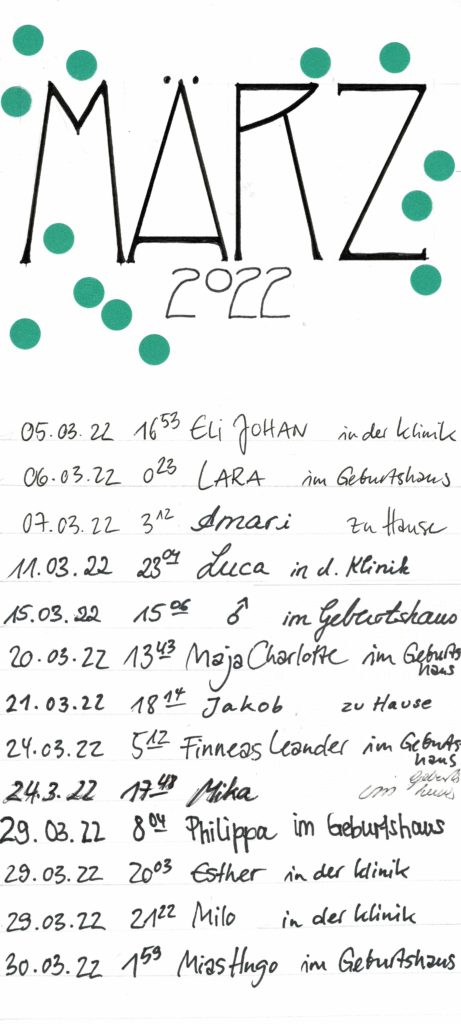 MÄRZ
2022
05.03.22 16 53 Eli JOHAN in der Klinik
06.03.22 0 23 LARA im Geburtshaus
07.03.22 3 12 Amari zu Hause
11.03.22 23 09 Luca in d. Klinik
15.03.22 15 06 ♂ im Geburtshaus
20.03.22 13 43 Maja Charlotte im Geburtshaus
21.03.22 18 14 Jakob zu Hause
24.03.22 5 12 Finneas Leander im Geburtshaus
24.3.22 17 48 Mika im Geburtshaus
29.03.22 8 04 Philippa im Geburtshaus
29.03.22 20 03 Esther in der Klinik
29.03.22 21 22 Milo in der Klinik
30.03.22 1 59 Mias Hugo im Geburtshaus